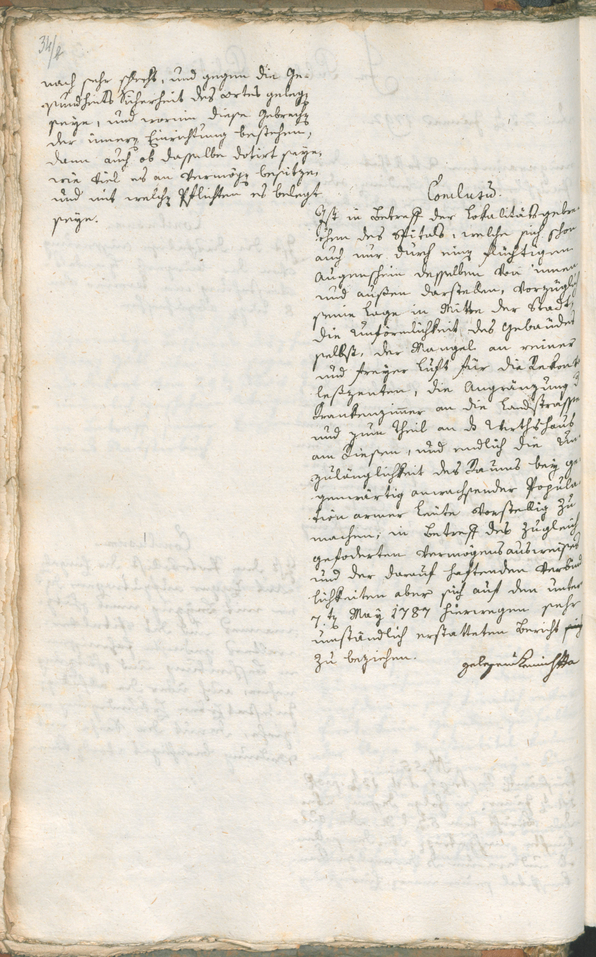 34/2
nach sehr schlecht, und gegen die Ge-
sundheits Sicherheit des Ortes gelegen
seye, und worinn diese Gebrechen
der innern Einrichtung bestehen,
dann auch ob dasselbe dotirt seye,
wie viel es an Vermögen besitze,
und mit welchen Pflichten es belegt
seye.
Conlusu.
Ist in Betreff der Lokalitäts gebre-
chen des Spitals, welche sich schon
auch nur durch einen flüchtigen
Augenschein desselben von innen
und außen darstellen, vorzüglich
seine Lage in Mitte der Stadt,
die Unförmlichkeit des Gebäudes
selbst, der Mangel an reiner
und freyer Luft für die Rekonva
leszenten, die Angränzung der
Krankenzimmer an die Landstrasse
und zum Theil an das Wirthshaus
am Riesen, und endlich die Un-
zulänglichkeit des Raums bey ge-
genwärtig anwachsender Popula-
tion armer Leute vorstellig zu
machen, in Betreff des zugleich
geforderten Vermögensausweises
und der darauf haftenden Verbind-
lichkeiten aber sich auf den unter
7. May 1787 hierwegen sehr
umständlich erstatteten Bericht
zu beziehen.